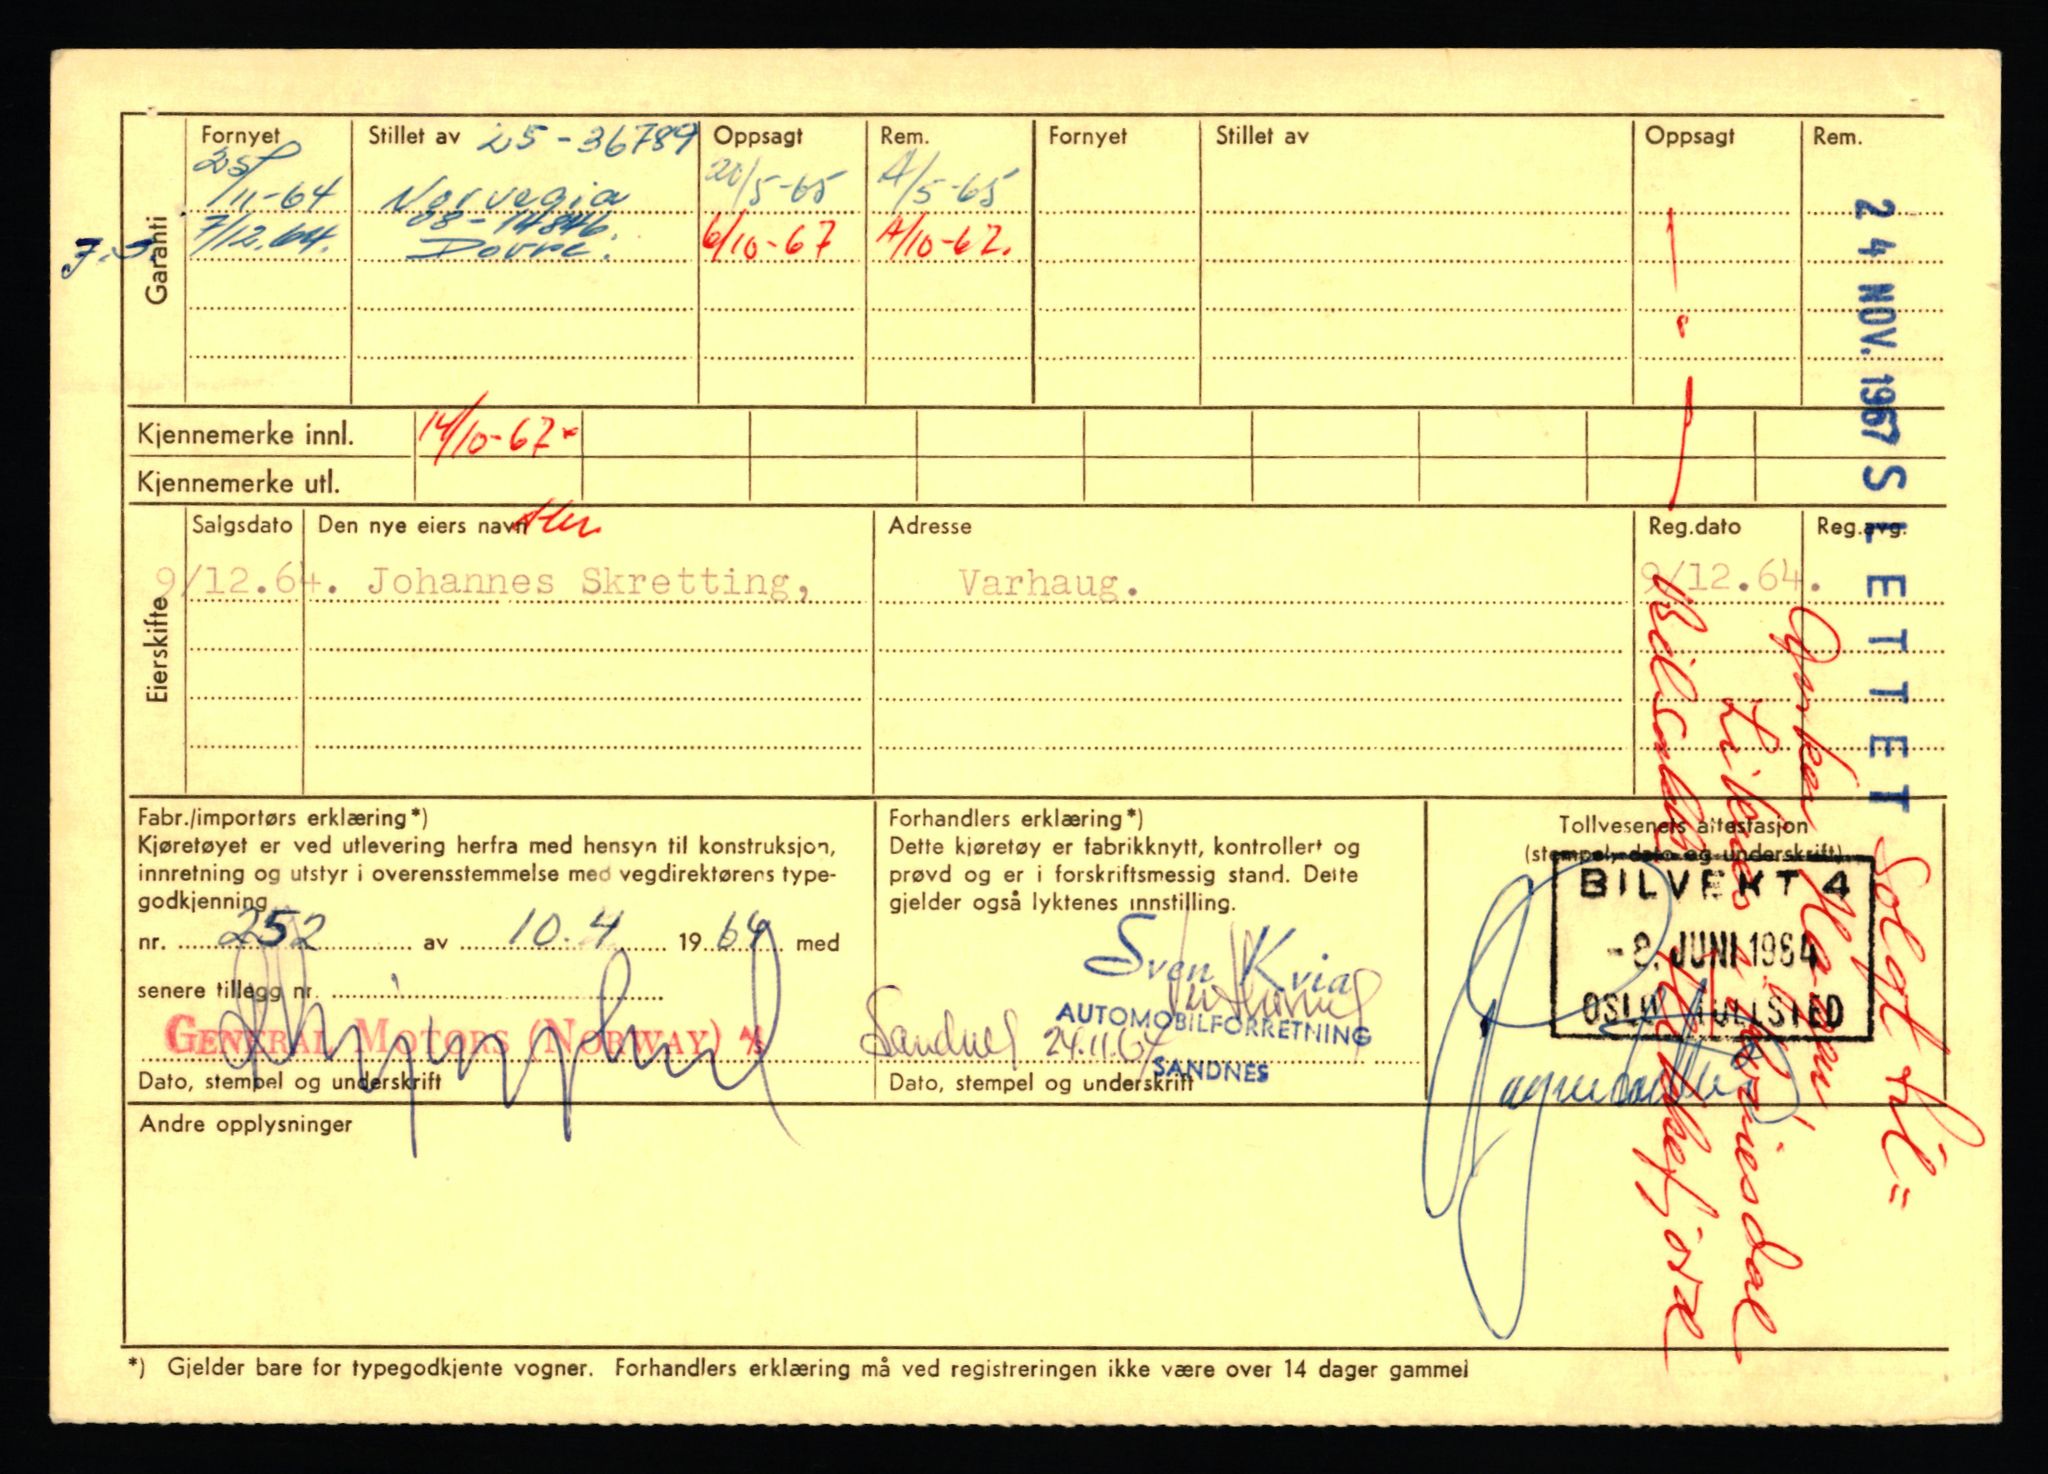 Garanti
Fornyet
Stillet av 25-36789
Oppsagt
Rem.
Fornyet
Stillet av
Oppsagt
Rem.
25/11-64 Norvegia 20/5-65 A/5-65
7/12.64. 08-14846. Dovre. 6/10-67 A/10-67.
Kjennemerke innl. 14/10-67
Kjennemerke utl.
Eierskifte
Salgsdato
Den nye eiers navn
Adresse
Reg.dato
Reg.avg.
9/12.64. Johannes Skretting, Varhaug. 9/12.64.
24 NOV. 1967 SLETTET
Solgt til =
Fabr./importørs erklæring*)
Kjøretøyet er ved utlevering herfra med hensyn til konstruksjon,
innretning og utstyr i overensstemmelse med vegdirektørens type-
godkjenning
nr. 252 av 10.4 1964 med
senere tillegg nr.
GENERAL MOTORS (NORWAY) A/S
Dato, stempel og underskrift
Forhandlers erklæring*)
Dette kjøretøy er fabrikknytt, kontrollert og
prøvd og er i forskriftsmessig stand. Dette
gjelder også lyktenes innstilling.
Sven Kvia
AUTOMOBILFORRETNING
SANDNES
Sandnes 24.11.64
Dato, stempel og underskrift
Tollvesenets attestasjon
(stempel, dato og underskrift)
BILVEKT 4
-8. JUNI 1964
OSLO TOLLSTED
Andre opplysninger
*) Gjelder bare for typegodkjente vogner. Forhandlers erklæring må ved registreringen ikke være over 14 dager gammel